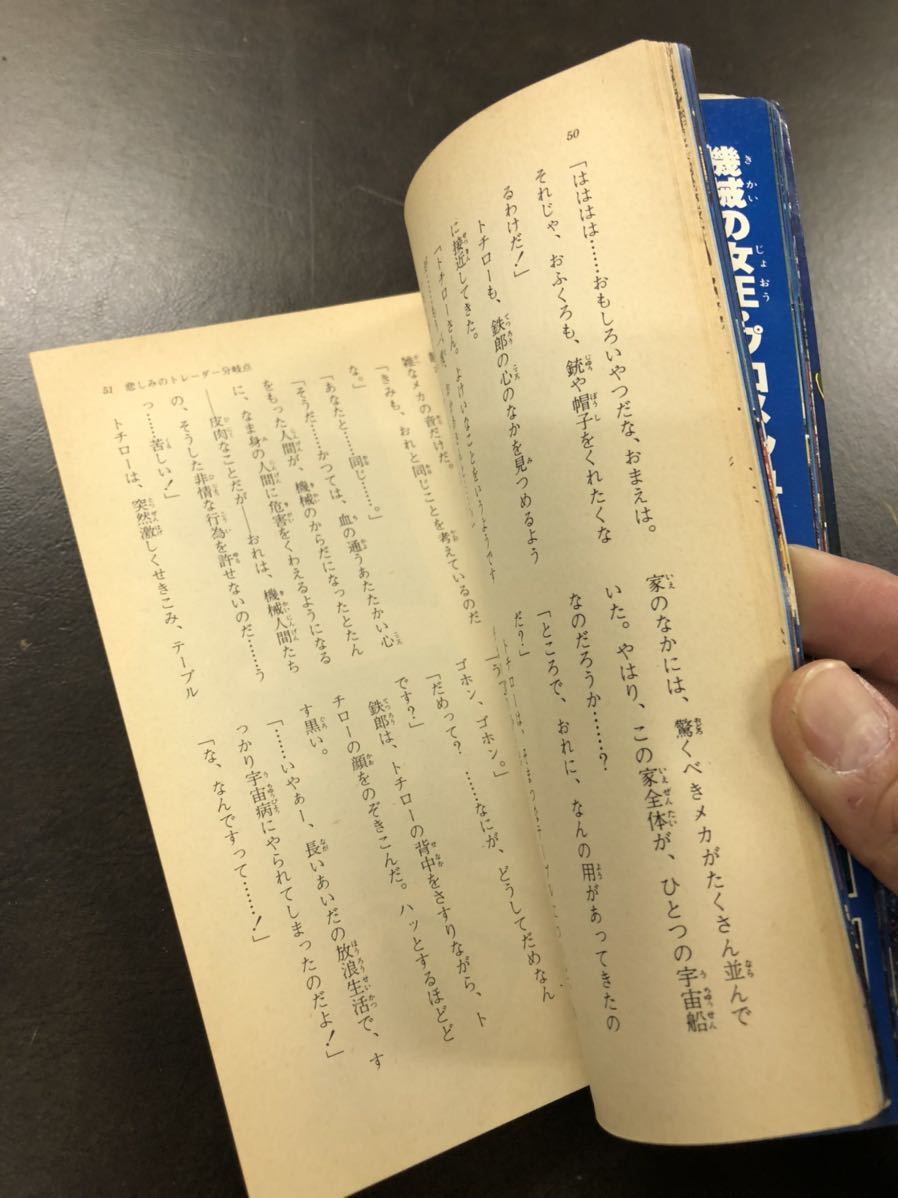 50
「はははは……おもしろいやつだな、おまえは。
それじゃ、おふくろも、銃や帽子をくれたくな
るわけだ！」
トチローも、鉄郎の心のなかを見つめるよう
に接近してきた。
「トチローさん。よけいなことをいうようです
家のなかには、驚くべきメカがたくさん並んで
いた。やはり、この家全体が、ひとつの宇宙船
なのだろうか……？
「ところで、おれに、なんの用があってきたの
だ？」
トチローは、
51 悲しみのトレーダー分岐点
雑なメカの音だけだ。
「きみも、おれと同じことを考えているのだ
な。」
「あなたと……同じ……。」
「そうだ……かつては、血の通うあたたかい心
をもった人間が、機械のからだになったとたん
に、なま身の人間に危害をくわえるようになる
――皮肉なことだが――おれは、機械人間たち
の、そうした非情な行為を許せないのだ……う
っ……苦しい！」
トチローは、突然激しくせきこみ、テーブル
ゴホン、ゴホン。」
「だめって？　……なにが、どうしてだめなん
です？」
鉄郎は、トチローの背中をさすりながら、ト
チローの顔をのぞきこんだ。ハッとするほどど
す黒い。
「……いやぁー、長いあいだの放浪生活で、す
っかり宇宙病にやられてしまったのだよ！」
「な、なんですって……！」
機械の女王・プロメシュ